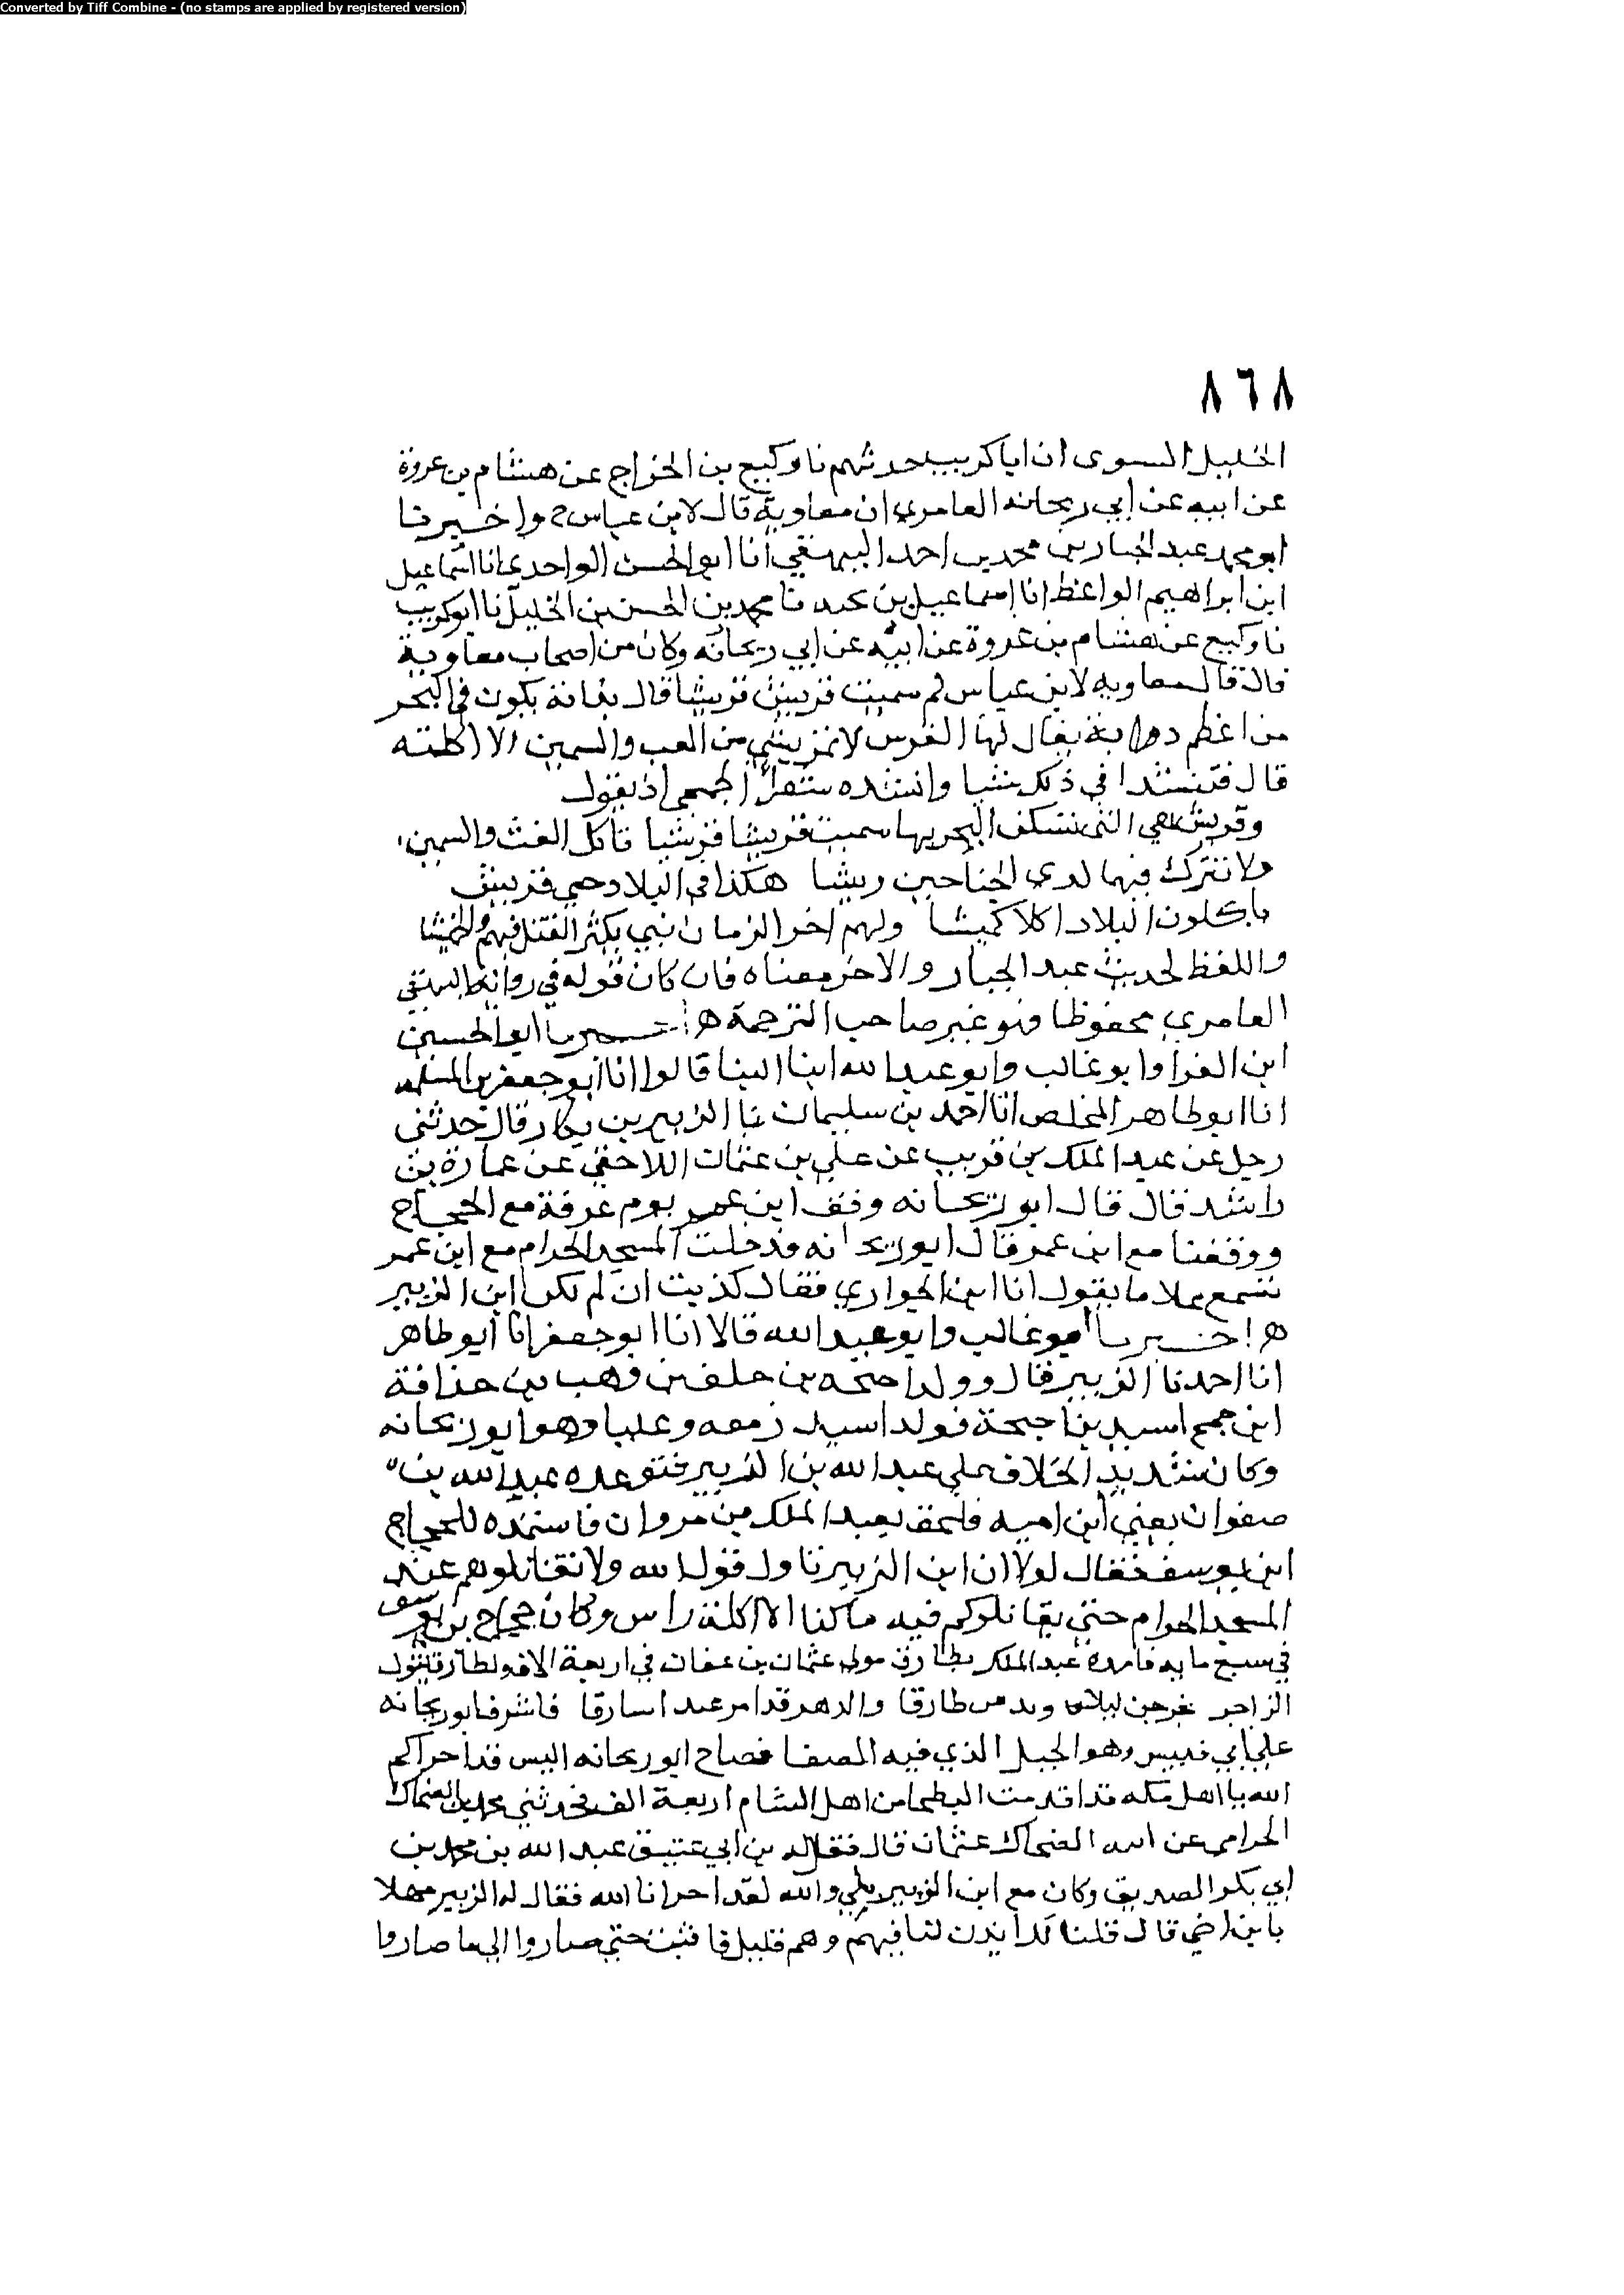 Converted by Tiff Combine - (no stamps are applied by registered version)
٨٦٨
الخليل النسوى ان ابا كريب حدثهم نا وكيع بن الجراج عن هشام بن عروة
عن ابيه عن ابي ريحانه العامري ان معاوية قال لابن عباس ح واخبرنا
ابو محمد عبد الجبار بن محمد بن احمد البيهقي أنا ابو الحسن الواحدي انا اسماعيل
ابن ابراهيم الواعظ انا اسماعيل بن نا محمد بن الحسن بن الخليل نا ابو كريب
نا وكيع عن هشام بن عروة عن ابيه عن ابي ريحانه وكان من اصحاب معاوية
قال قال معاويه لابن عباس لم سميت قريش قريشا قال بدابة يكون في البحر
من اعظم دوابه يقال لها القرش لا تمر بشي من الغث والسمين الا اكلته
قال فتنشد في ذلك شيا وانشده شعر الجمحي اذ يقول
وقريش هي التي تسكن البحر بها سميت قريشا قريشا تاكل الغث والسمين
ولا تترك فيها لدي الجناحين ريشا هكذا في البلاد حي قريش
ياكلون البلاد اكلا كميشا ولهم اخر الزمان نبي يكثر القتل فيهم والخمشا
واللفظ لحديث عبد الجبار والاخر معناه فان كان قوله في رواية البيهقي
العامري محفوظا فهو غير صاحب الترجمة ه اخبرنا ابو الحسين
ابن الفرا وابو غالب وابو عبد الله ابنا البنا قالوا انا ابو جعفر بن المسلمه
انا ابو طاهر المخلص انا احمد بن سليمان نا الزبير بن بكار قال حدثني
رجل عن عبد الملك بن قريب عن علي بن عثمان اللاحقي عن عمارة بن
راشد قال قال ابو ريحانه وقف ابن عمر يوم عرفة مع الحجاج
ووقفنا مع ابن عمر قال ابو ريحانه فدخلت المسجد الحرام مع ابن عمر
نسمع رجلا ما يقول انا ابن الحواري فقال كذبت ان لم تكن ابن الزبير
ه اخبرنا ابو غالب وابو عبد الله قالا انا ابو جعفر انا ابو طاهر
انا احمد نا الزبير قال وولد احيحه بن خلف بن وهب بن حذافة
ابن جمح اسيد بن احيحة فولد اسيد زمعه وعليا وهو ابو ريحانه
وكان شديد الخلاف علي عبد الله بن الزبير فتوعده عبد الله بن
صفوان يعني ابن اميه فلحق بعبد الملك بن مروان فاستمده للحجاج
ابن يوسف فقال لولا ان ابن الزبير تاول قول الله ولا تقاتلوهم عند
المسجد الحرام حتى يقاتلوكم فيه ما كنا الا اكلة راس وكان حجاج بن يوسف
في سبع مايه فامده عبد الملك بطارق مولى عثمان بن عفان في اربعة الاف ولطارق يقول
الزاجر يخرجن ليلا طارقا والدهر قد امر عبدا سارقا فاشرف ابو ريحانه
علي ابي قبيس وهو الجبل الذي فيه الصفا فصاح ابو ريحانه اليس قد اخزاكم
الله يا اهل مكه قد اقدمت البطحا من اهل الشام اربعة الف فحدثني محمد بن الضحاك
الحزامي عن ابيه الضحاك عثمان قال فقال له بن ابي عتيق عبد الله بن محمد بن
ابي بكر الصديق وكان مع ابن الزبير بلي والله لقد اخزانا الله فقال له الزبير مهلا
يا بن اخي قال قلنا لك ايذن لنا فيهم وهم قليل فابيت حتي صاروا الي ما صاروا